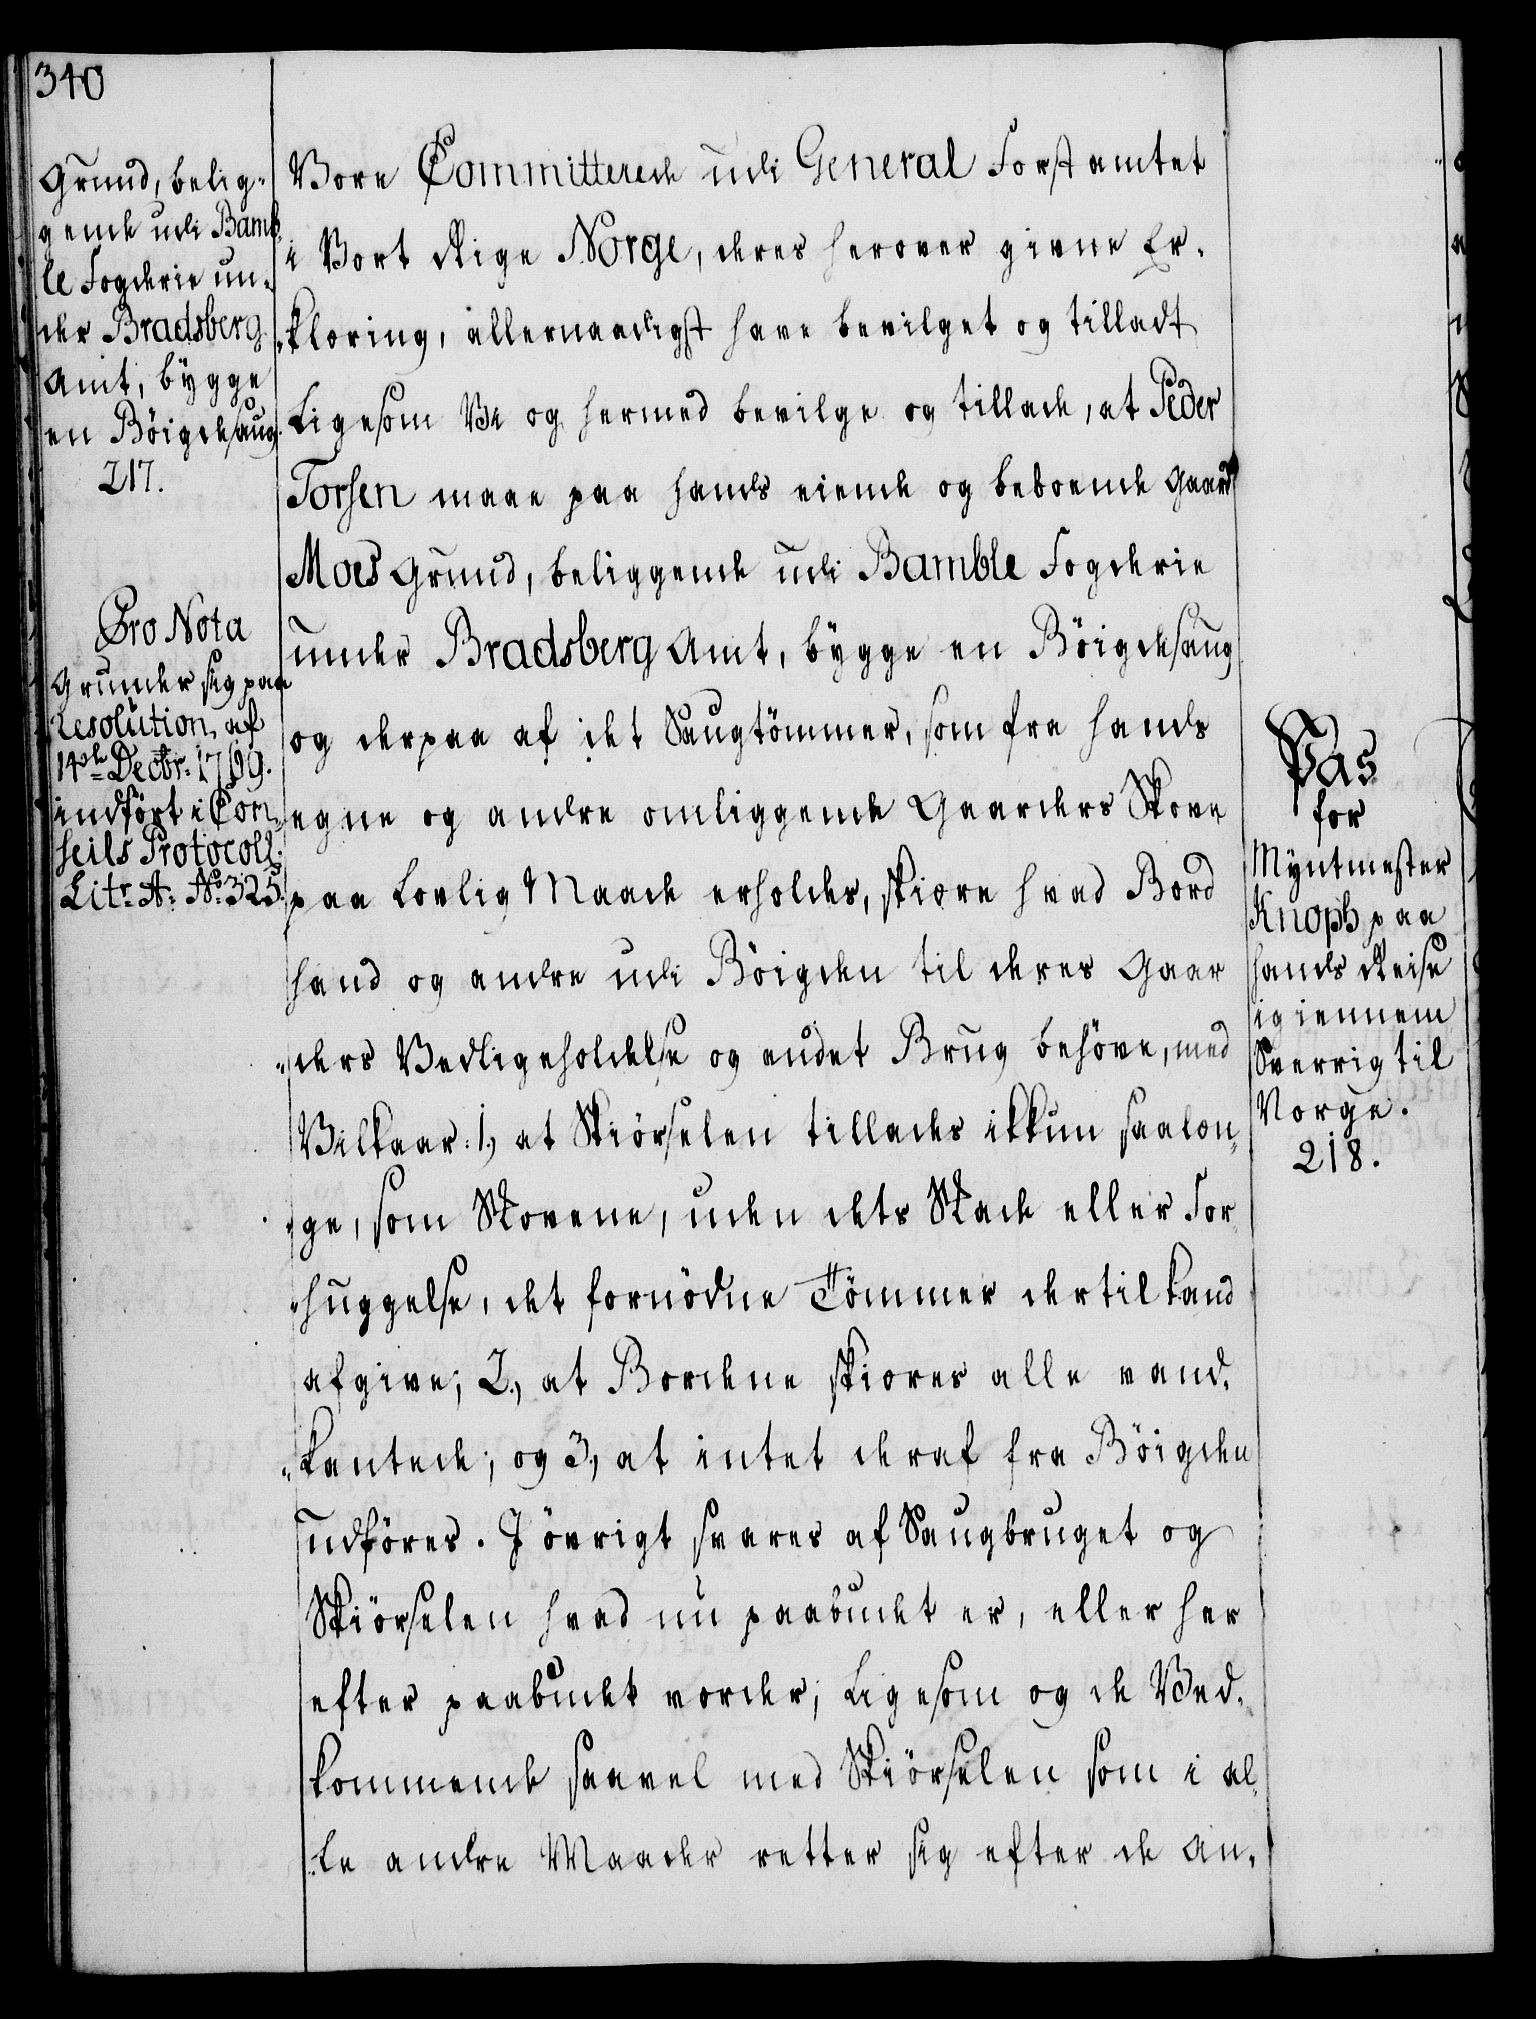 340
Grund, belig-
gende udi Bamb-
le Fogderie un-
der Bradsberg
Amt, bygge
en Böigdesaug
217.
Pro Nota
Grunder sig paa
Resolution af
14de Decbr: 1769.
indfört i Con-
seils Protocoll
Litr: A: No: 325.
Vore Committerede udi General Forstamtet
i Vort Rige Norge, deres herover givne Er-
klæring, allernaadigst have bevilget og tilladt
Ligesom Vi og hermed bevilge og tillade, at Peder
Torsen maae paa hands eiende og beboende Gaard
Moes Grund, beliggende udi Bamble Fogderie
under Bradsberg Amt, bygge en Böigdesaug
og derpaa af det Saugtömmer, som fra hands
egne og andre omliggende Gaarders Skove
paa Lovlig Maade erholdes, skiære hvad Bord
hand og andre udi Böigden til deres Gaar
-ders Vedligeholdelse og andet Brug behöve, med
Vilkaar: 1, at Skiörselen tillades ikkun saalæn-
-ge, som Skovene, uden dets Skade eller For
-huggelse, det fornödne Tömmer dertil kand
afgive; 2, at Bordene skiæres alle vand-
-kantede; og 3, at intet deraf fra Böigden
udföres. I övrigt svares af Saugbruget og
Skiörselen hvad nu paabudet er, eller her
efter paabudet vorder; Ligesom og de Ved-
kommende saavel med Skiörselen som i al-
-le andre Maader retter sig efter de An-
Pas
for
Myntmester
Knoph paa
hands Reise
igiennem
Sverrig til
Norge.
218.